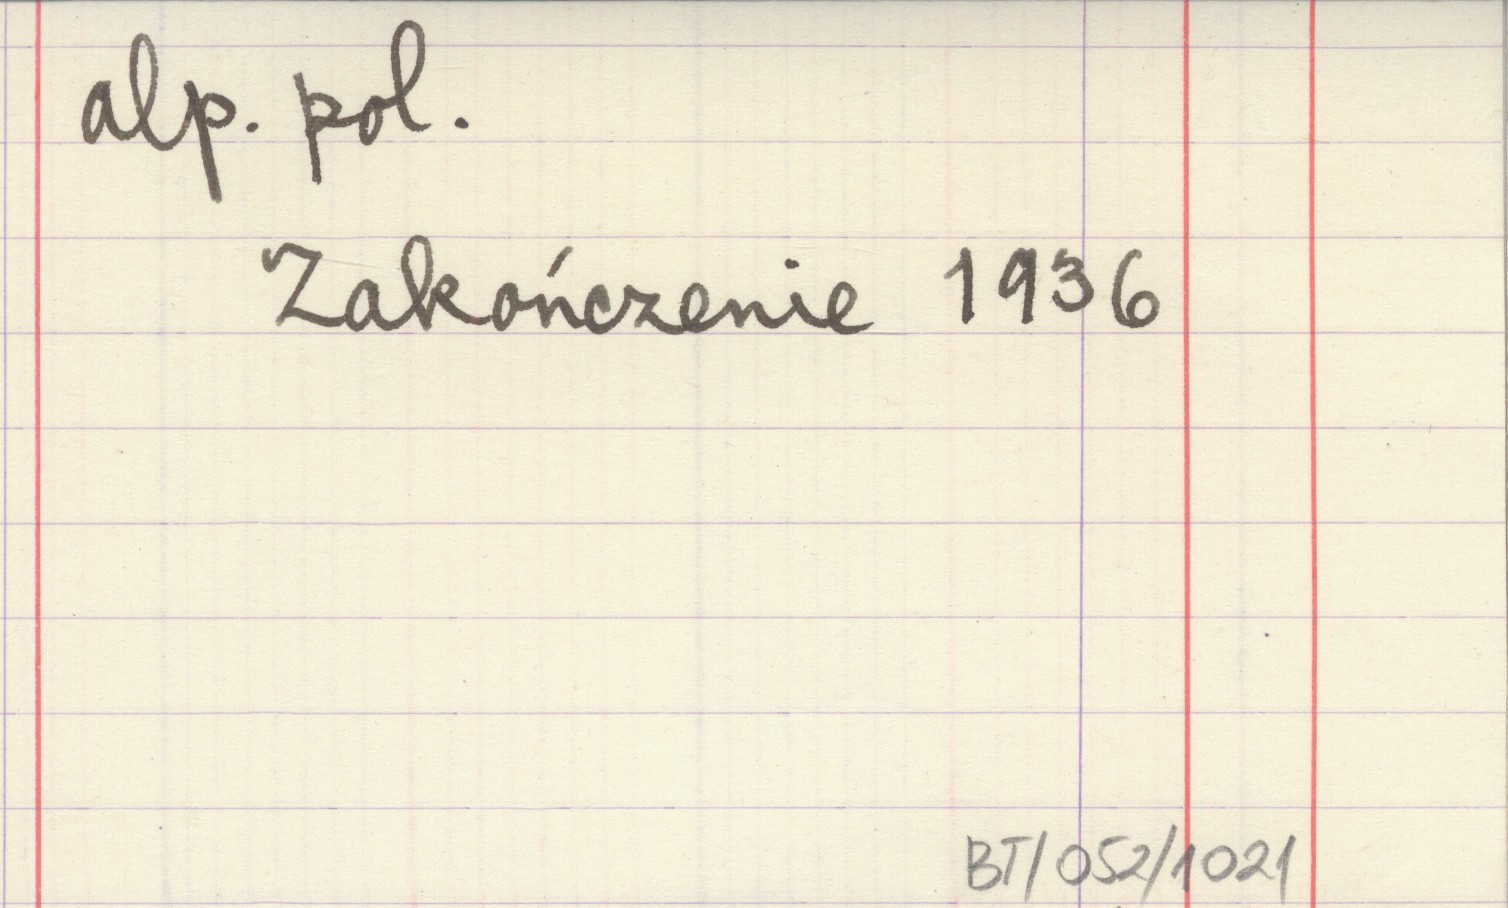 alp. pol.
Zakończenie 1936
BT/052/1021